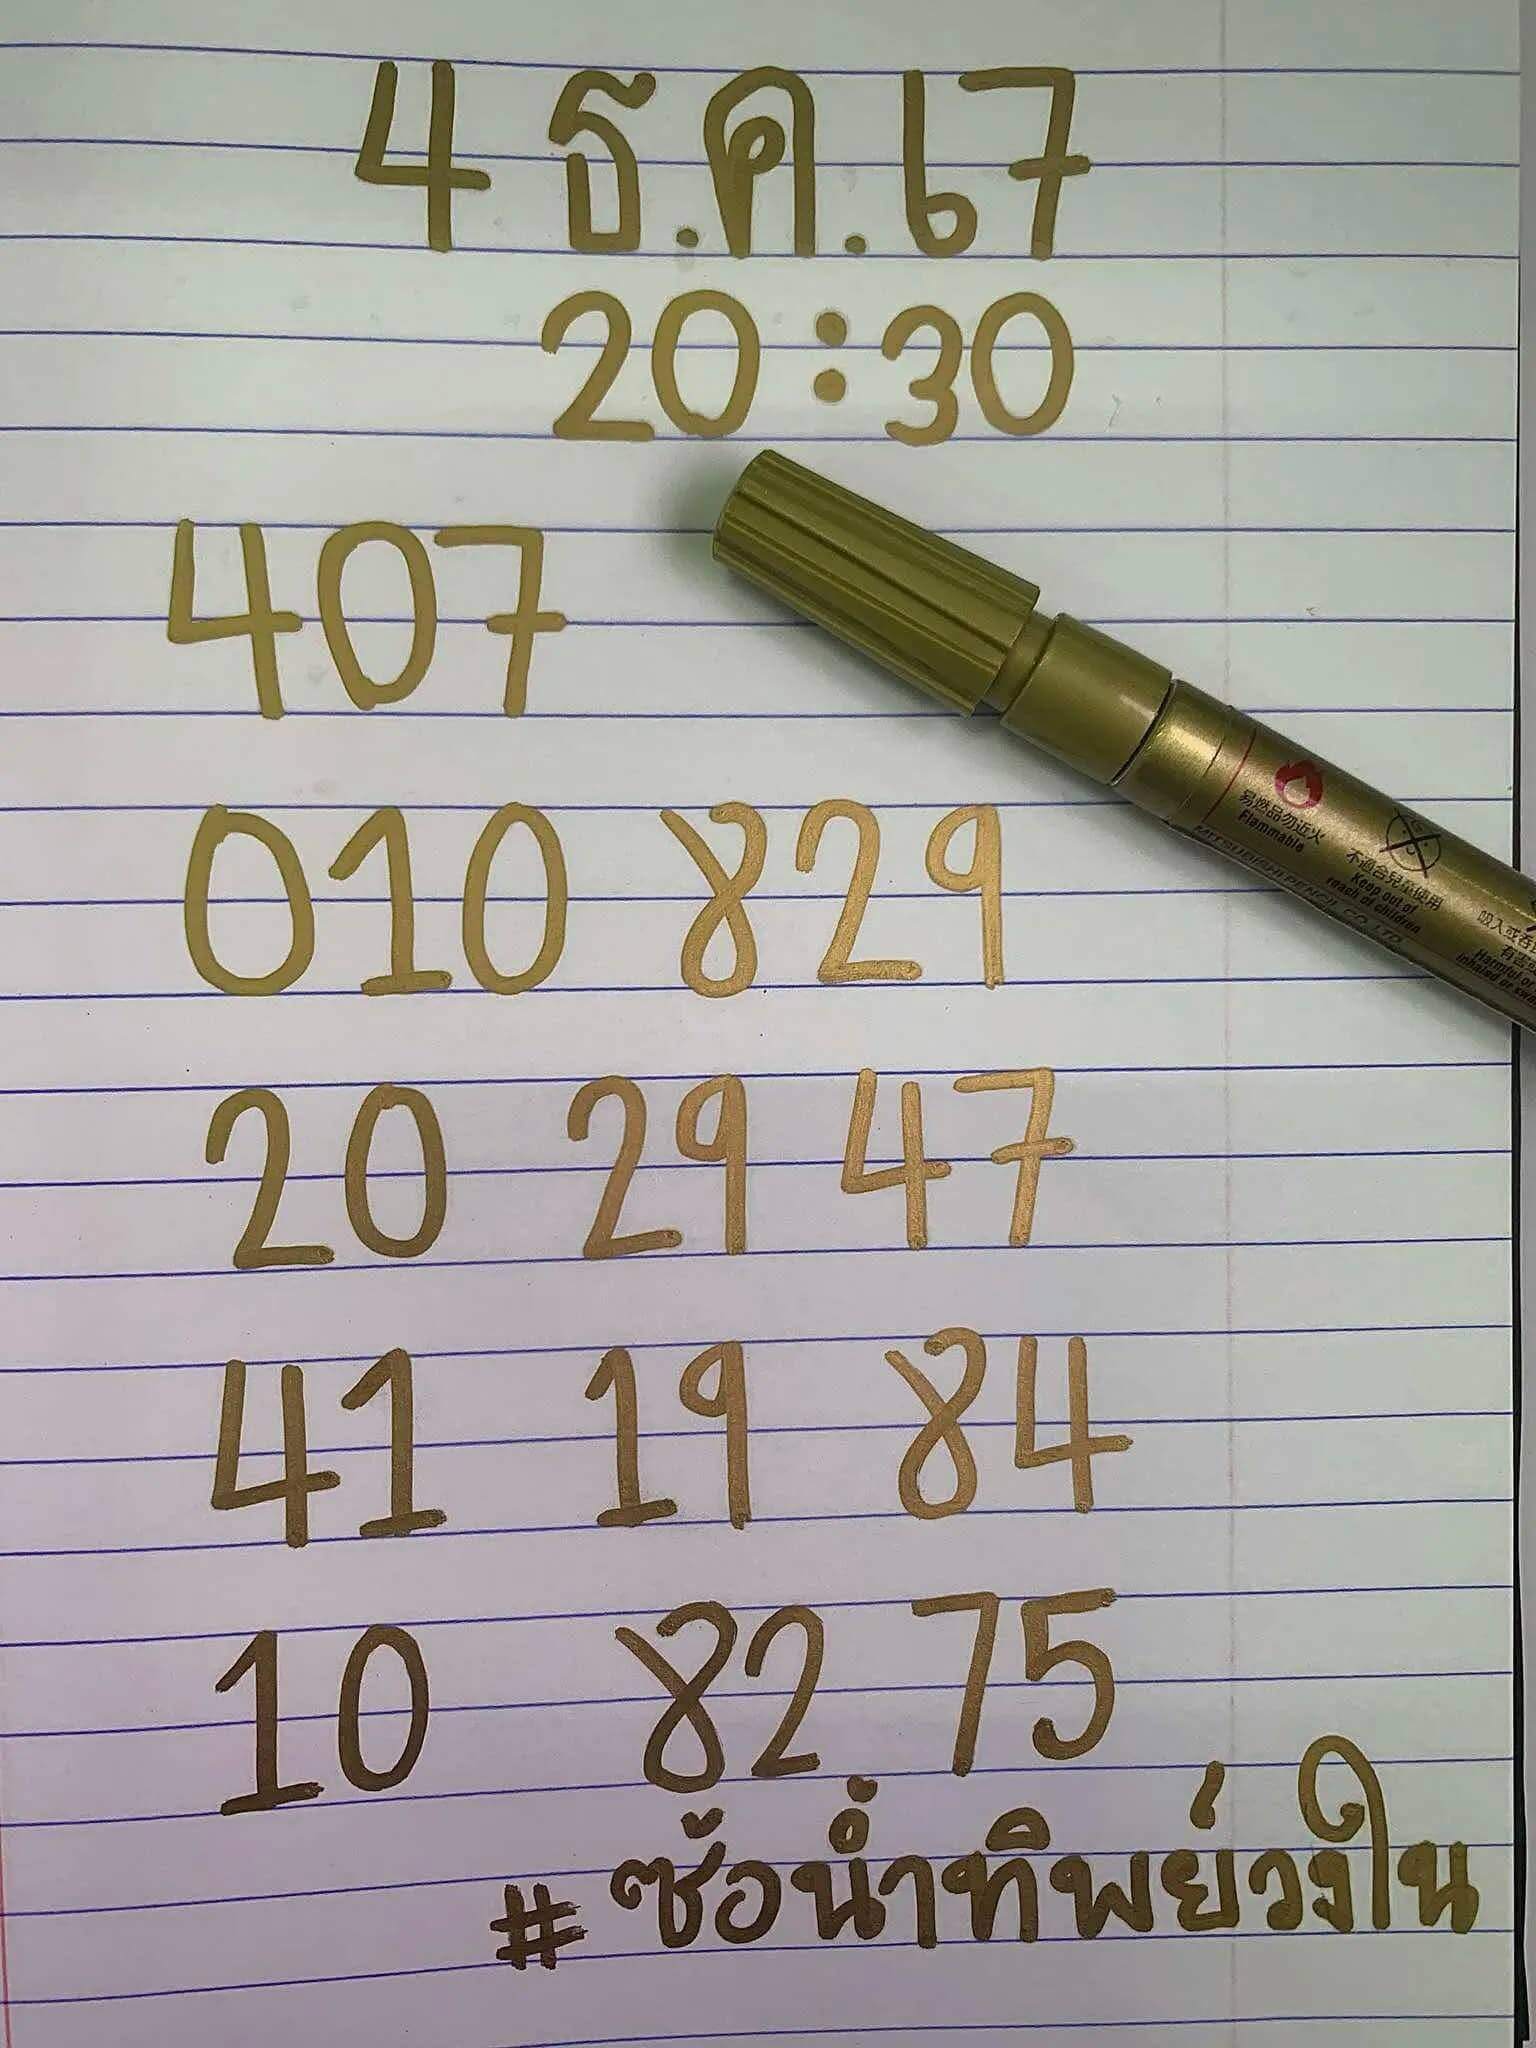 4 ธ.ค.67
20:30
407
010 829
20 29 47
41 19 84
10 82 75
#ซ้อน้ำทิพย์วงใน
易燃品勿近火
Flammable
不適合兒童使用
Keep out of
reach of children
MITSUBISHI PENCIL CO., LTD.
Harmful